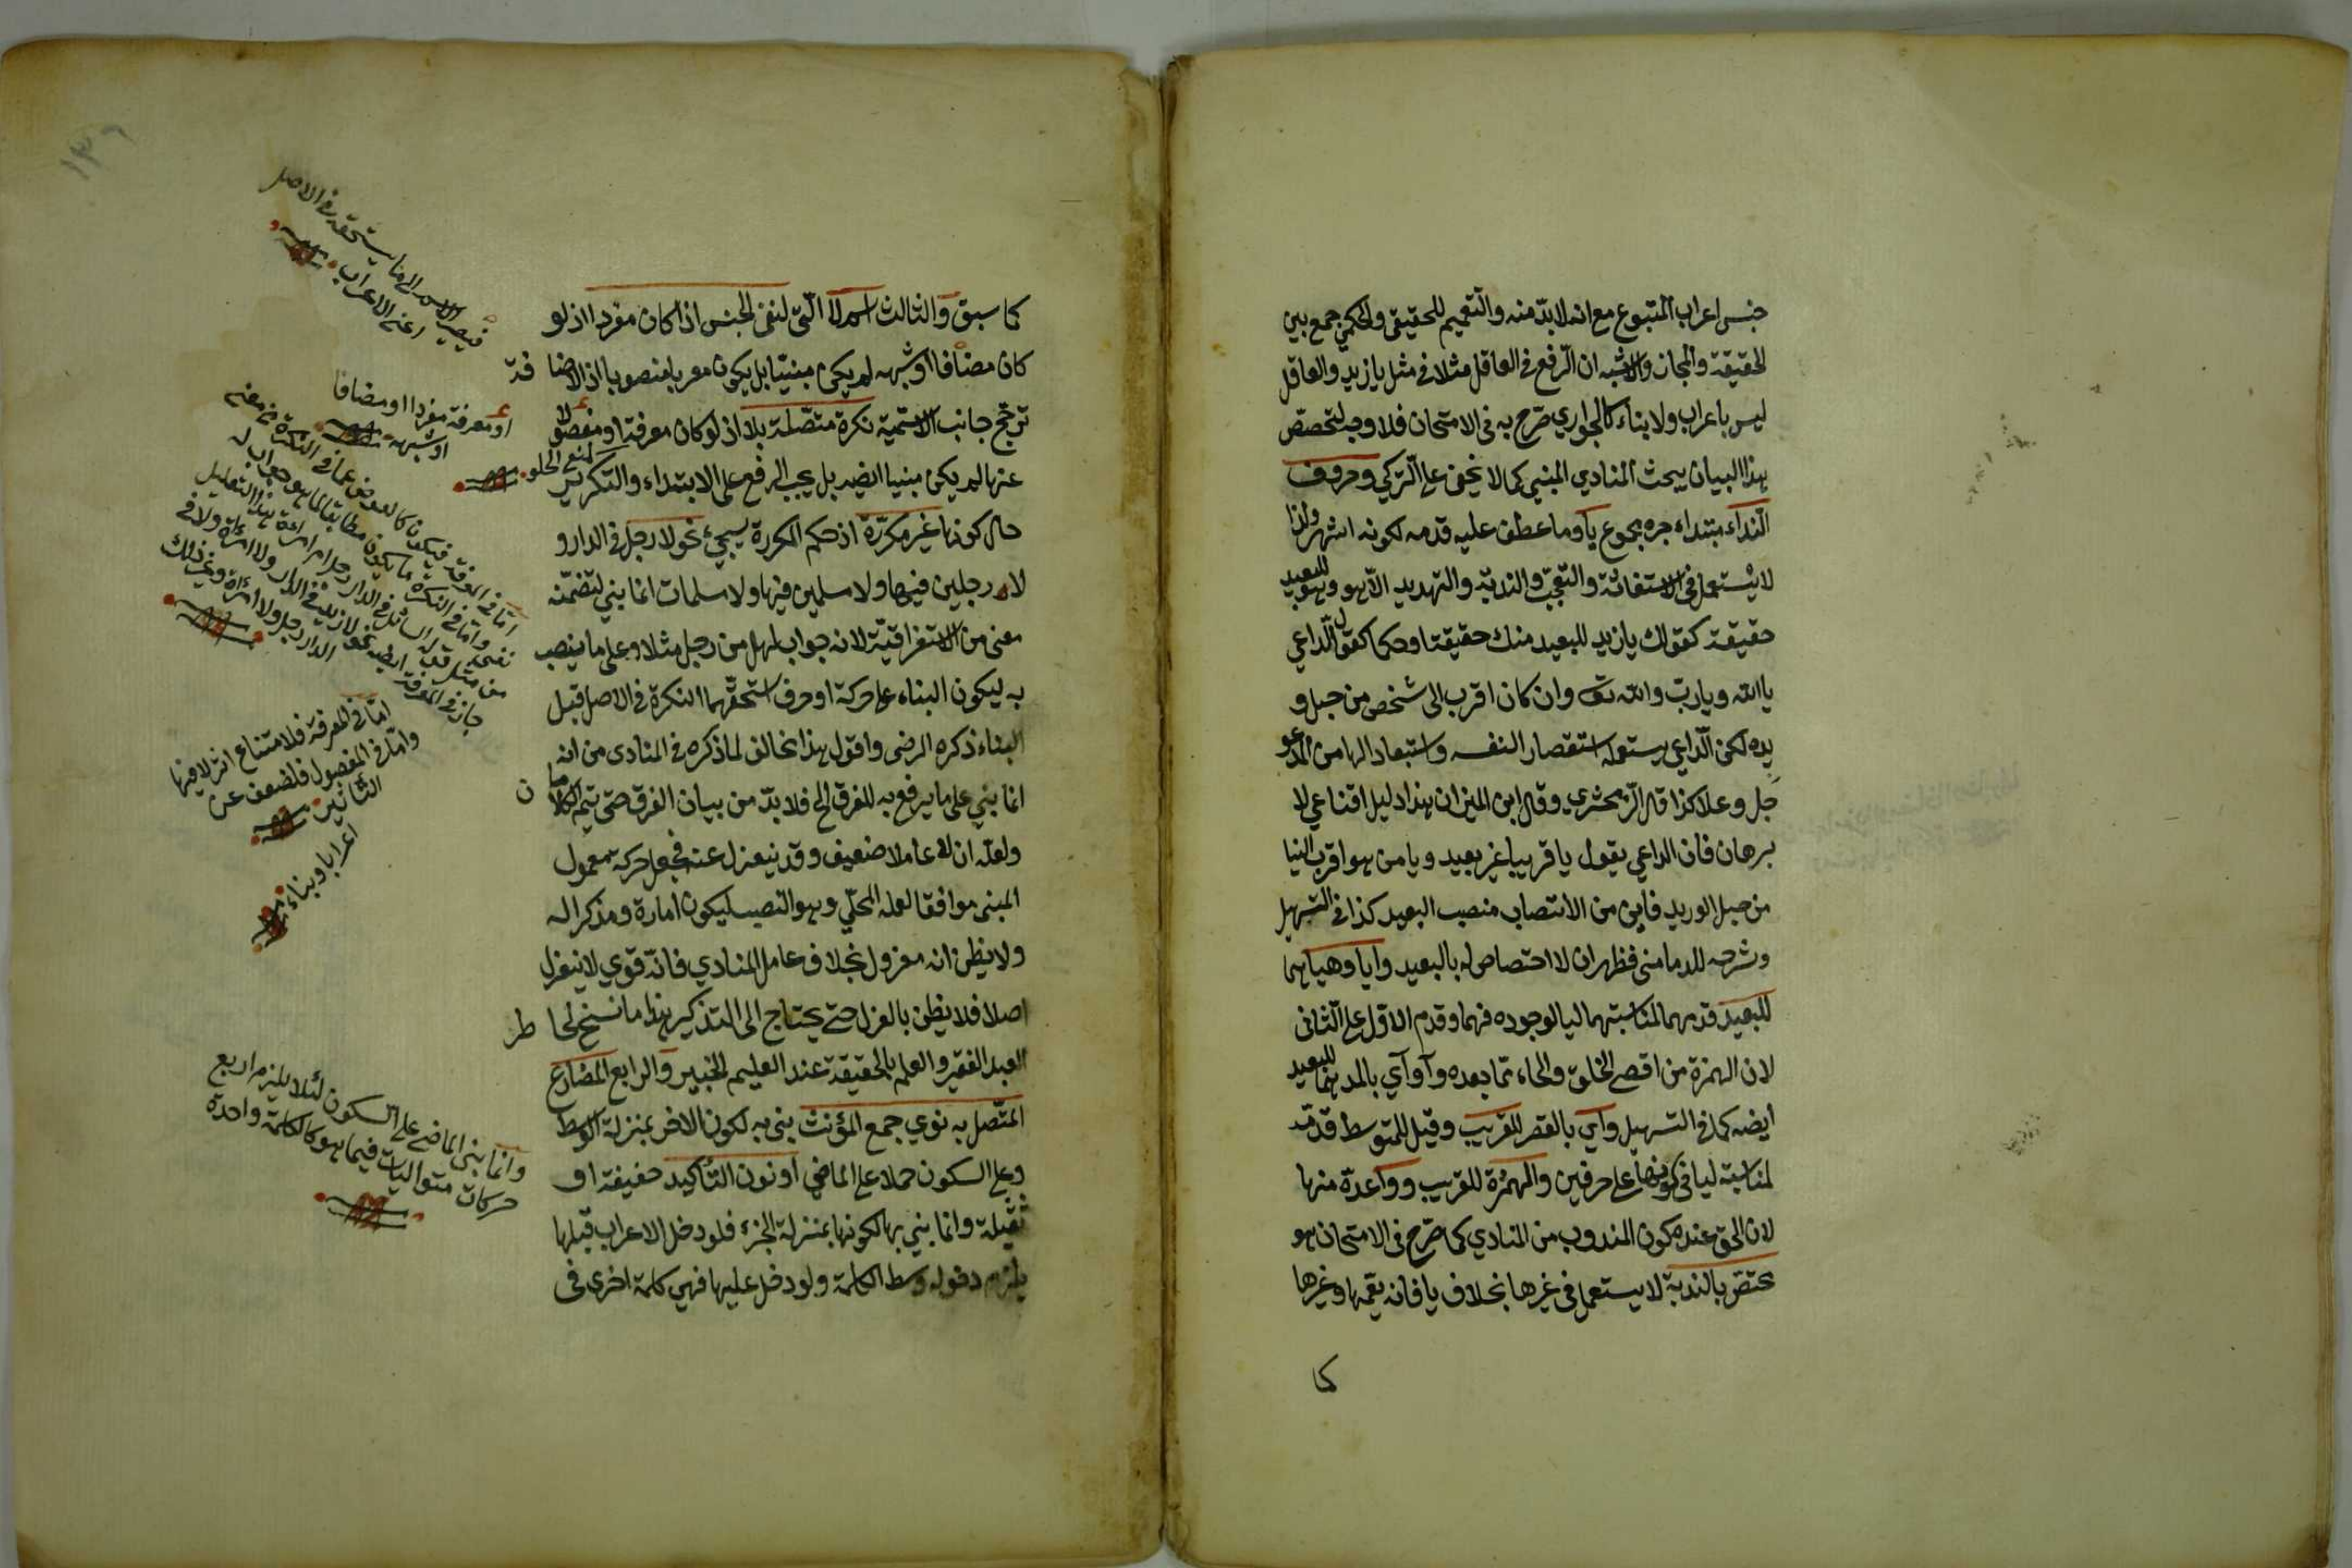 جنس اعراب المتبوع مع انه لا بدّ منه والتعميم للحقيقي والحكمي جمع بين
الحقيقة والمجاز والاشبه ان الرفع في العاقل مثلا في مثل يا زيد والعاقل
ليس باعراب ولا بناء كالجواري صرّح به في الامتحان فلا وجه لتخصيص
هذا البيان ببحث المنادي المبني كما لا يخفى على الزكي وحروف
النداء مبتداء خبره مجموع يا وما عطف عليه قدمه لكونه اشهر ولذا
لا يستعمل في الاستغاثة والتعجب والندبة والتهديد الا هو وهو للبعيد
حقيقة كقولك يا زيد للبعيد منك حقيقتا وحكما كقول الداعي
يا الله ويا ربّ والله تعـ وان كان اقرب الى شخص من حبل و
يده لكن الداعي يستعمله استقصار النفسه واستبعاد الها من المدعو
جل وعلا كذا قال الزمخشري وقال ابن المنير ان هذا دليل اقناعي لا
برهان فان الداعي يقول يا قريبا غير بعيد ويا من هو اقرب الينا
من حبل الوريد فاين من الانتصاب منصب البعيد كذا في التسهيل
وشرحه للدماميني فظهر ان لا اختصاص له بالبعيد وايا وهيا هما
للبعيد قدمهما لمناسبتهما ليا لوجوده فيهما وقدم الاوّل على الثاني
لان الهمزة من اقصى الحلق والهاء مما بعده وآ وآي بالمد هما للبعيد
ايضه كما في التسهيل واي بالقصر للقريب وقيل للمتوسط قدمه
لمناسبته ليا في كونهما على حرفين والهمزة للقريب ووا عدّه منها
لان الحق عنده كون المندوب من المنادي كما صرّح في الامتحان هو
مختص بالندبة لا يستعمل في غيرها بخلاف يا فانه يعمها وغيرها
كما
كما سبق والثالث اسم لا التي لنفي الجنس اذا كان مفردا اذ لو
كان مضافا او شبهه لم يكن مبنيّا بل يكون معربا منصوبا اذ الاضا فة
ترجّح جانب الاسمية نكرة متصلة بلا اذ لو كان معرفة او مفصولا
عنها لم يكن مبنيا ايضه بل يجب الرفع على الابتداء والتكرير
حال كونها غير مكرّرة اذ حكم المكررة يسجيء نحو لا رجل في الدار و
لا رجلين فيها ولا مسلمين فيها ولا مسلمات انما بني لتضمّنه
معنى من الاستغراقيّة لانه جواب لهل من رجل مثلا وعلى ما ينصب
به ليكون البناء على حركة او حرف استحقهما النكرة في الاصل قبل
البناء ذكره الرضى واقول هذا مخالف لما ذكره في المنادى من انه
انما بني على ما يرفع به للفرق الخ فلا بدّ من بيان الفرق حتى يتم الكلام
ولعلّه ان لا عاملا ضعيف وقد ينعزل عنه فجعل حركة معمول
المبنى موافقا لعمله المحلّي وهو النصب ليكون امارة ومذكرا له
ولا يظن انه معزول بخلاف عامل المنادي فانه قوي لا ينعزل
اصلا فلا يظن بالعزل حتى يحتاج الى التذكير هذا ما نسخ لخا طر
العبد الفقير والعلم بالحقيقة عند العليم الخبير والرابع المضارع
المتصل به نوي جمع المؤنث بنى به لكون الاخر بمنزلة الوسط
وعلى السكون حملا على الماضي او نون التأكيد خفيفة او
ثقيلة وانما بني بها لكونها بمنزلة الجزء فلو دخل الاعراب قبلها
يلزم دخوله وسط الكلمة ولو دخل عليها فهي كلمة اخرى في
فيصير الاسم الى ما يستحقه في الاصل
اعني الاعراب
او معرفة مفردا او مضافا
او شبهه
لمنع الخلو
امّا في المعرفة فلامتناع اثر لا فيها
وامّا في المفصول فلضعف عن
التأثير
اعرابا وبناء
وانّما بنى الماضي على السكون لئلا يلزم اربع
حركات متواليات فيما هو كالكلمة واحدة
١٣٦